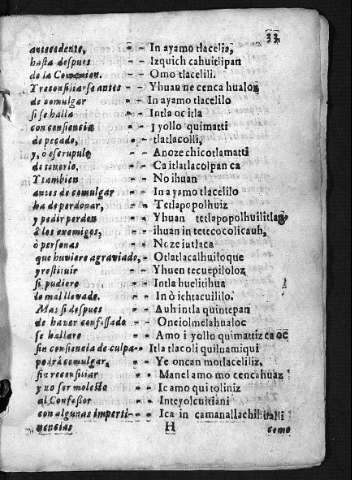 33
antecedente, - - In ayamo tlacelia,
hasta despues - - Izquich cahuitlipan
de la Comunion. - - Omo tlacelili.
Y reconsiliarse antes - - Yhuan ne cenca hualoz
de comulgar - - In ayamo tlacelilo
si se halla - - Intla oc itla
con consiencia - - i yollo quimatti
de pecado, - - tlatlacolli,
y, o escrupulo - - Anoze chicotlamatti
de tenerlo. - - Ca itlatlacolpan ca
Y tambien - - No ihuan
antes de comulgar - - In ayamo tlacelilo
ha de perdonar, - - Tetlapopolhuiz
y pedir perdon - - Yhuan tetlapopolhuilitlanız
à los enemigos, - - ihuan in tetecocolicauh,
ò personas - - Noze iutlaca
que huviere agraviado, - Otlatlacalhuiloque
y restituir - - Yhuen tecuepiloloz
si pudiere - - Intla huelitihua
lo mal llevado. - - In ò ichtacuililo.
Mas si despues - - Auh intla quintepan
de haver confessado - - Oneiolmelahualoc
se hallare - - Amo i yollo quimattiz ca oc
sin consiencia de culpa - - Itla tlacoli quilnamiqui
podrá comulgar, - - Ye oncan motlaceliliz,
sin reconsiliar - - Manel amo mo cencahuaz
y no ser molesto - - Ic amo quitoliniz
al Confessor - - Inteyolcuitiani
con algunas imperti- - - Ica in camanallachihualli
nencias H como